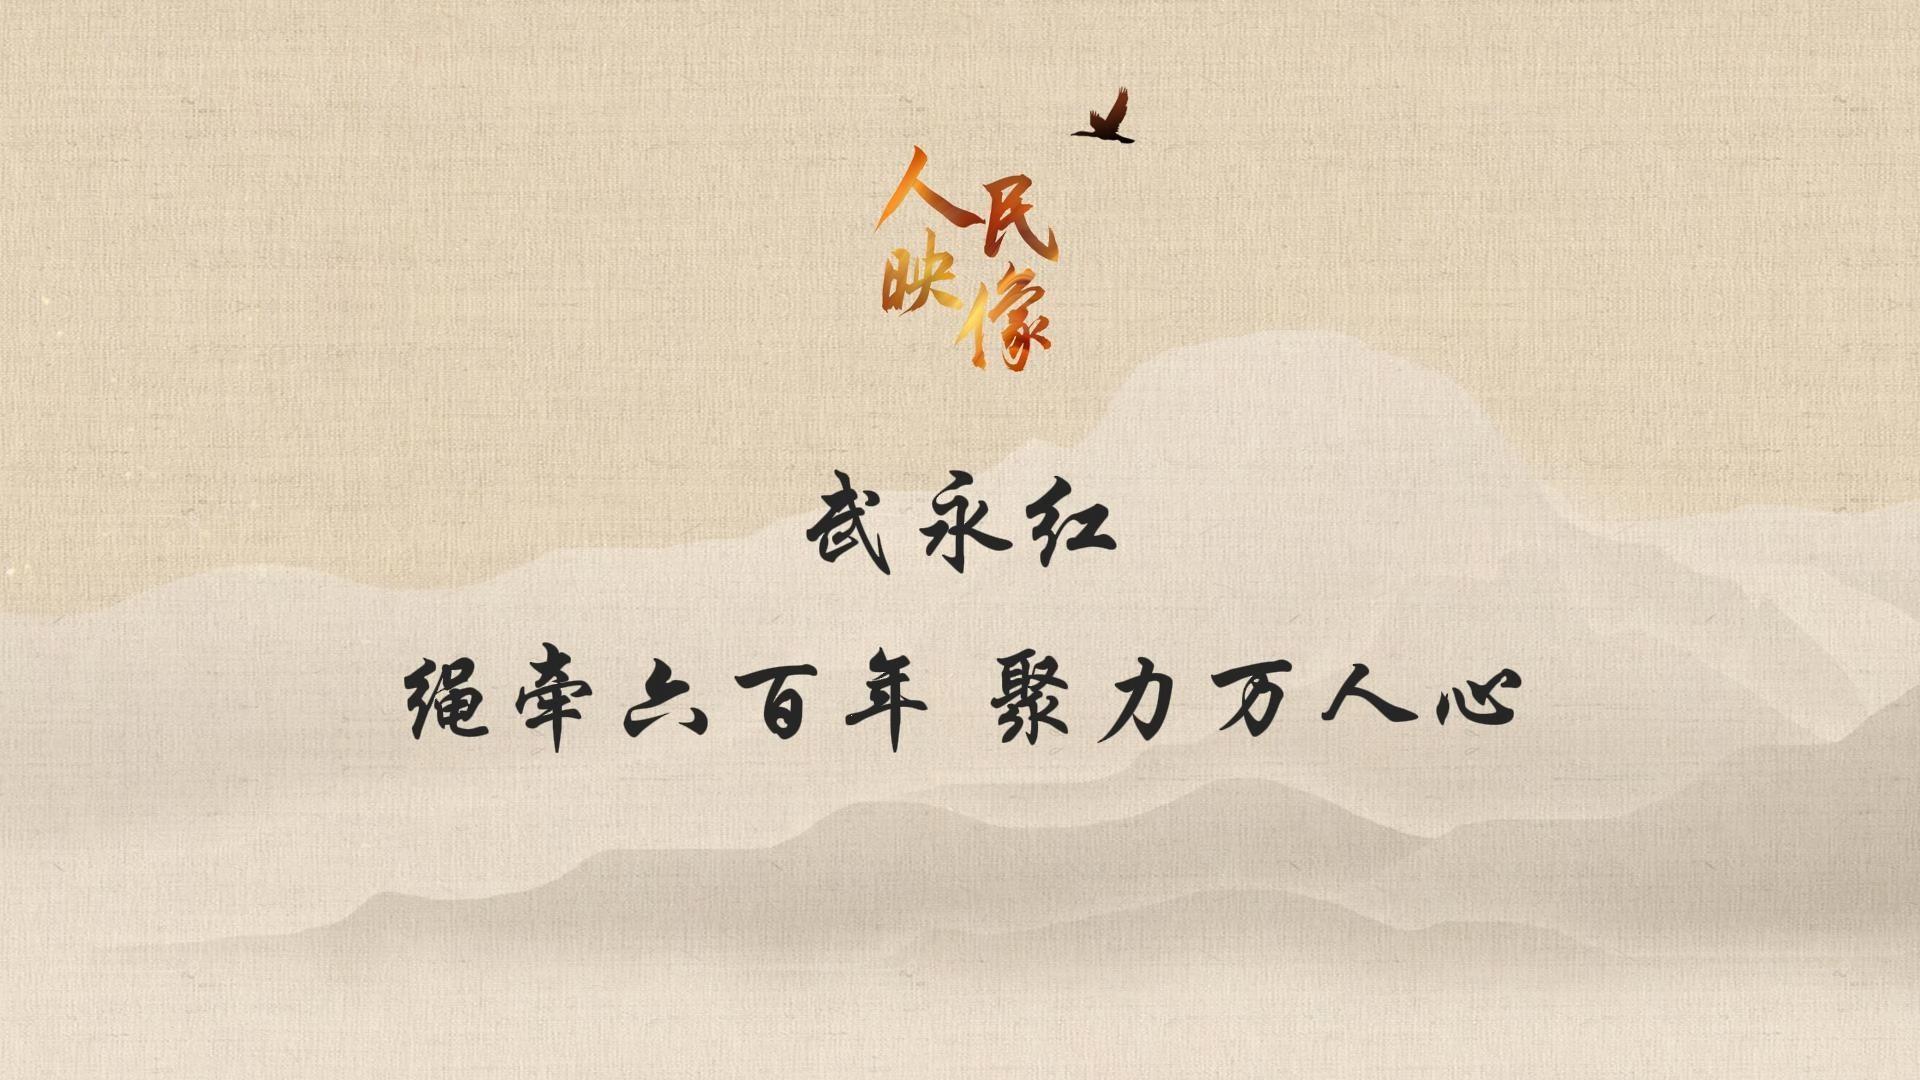 人民
映像
武永红
绳牵六百年 聚力万人心